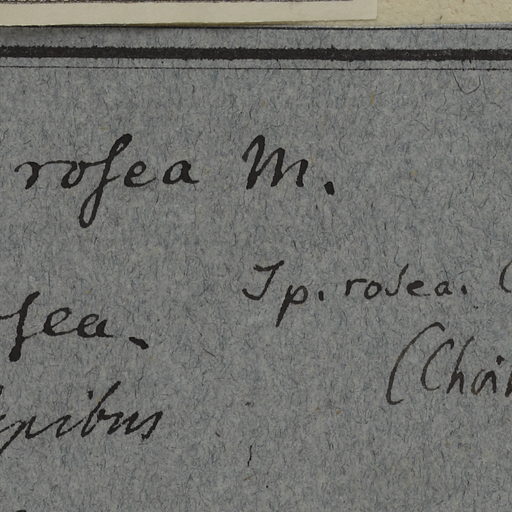 roſea M.
Ip. rosea.
ſea.
(Choi
pibus